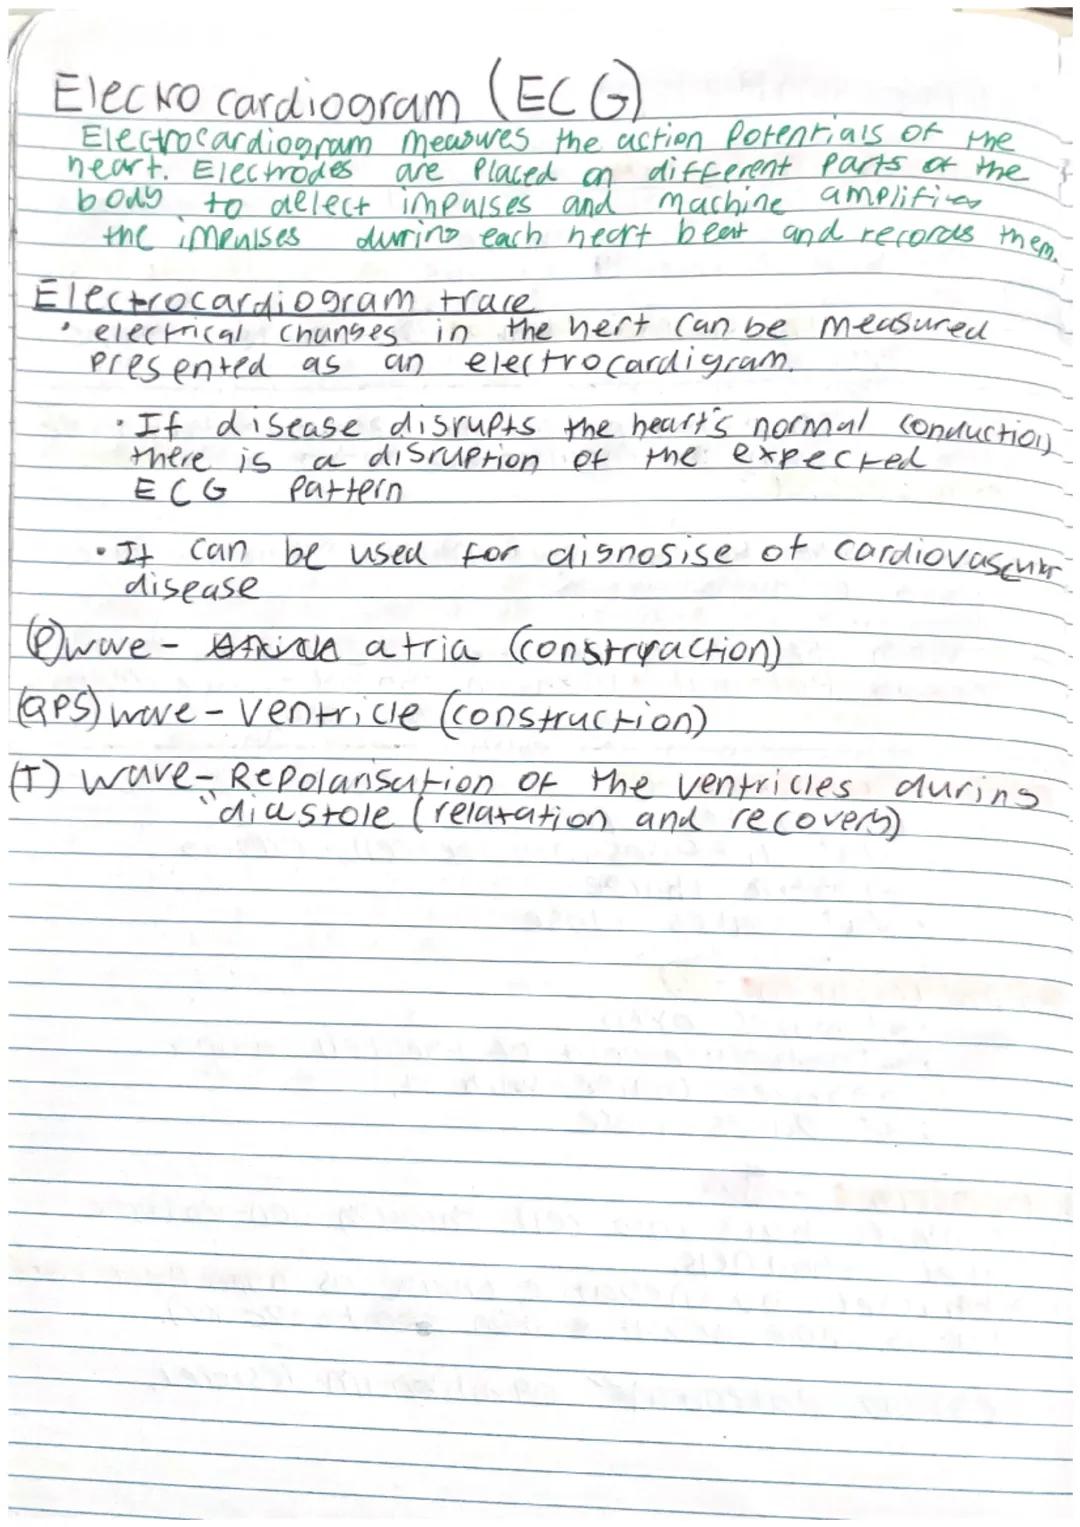 Elecro cardiogram (ECG)
Electrocardiogram measures the action potentials of the
heart. Electrodes are placed on different parts of the
body to detect impulses and machine amplifies
the impulses during each heart beat and records them.
Electrocardiogram trace
• electrical changes in the hert can be measured
presented as an electrocardigram.
• If disease disrupts the heart's normal conduction
there is a disruption of the expected
ECG pattern
• It can be used for disnosise of cardiovascular
disease
(P) wave - atria (constryaction)
(QRS) wave - ventricle (construction)
(T) wave - Repolarisation of the ventricles during
"diastole (relaxation and recovery)